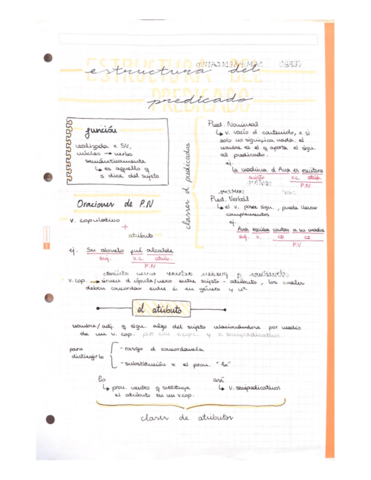 estructura del
predicado
función
realizada x SV,
núcleo → verbo
semánticamente
↳ es aquello q
se dice del sujeto
clases d predicados
Pred. Nominal
↳ v. vacío d contenido, x si
solo no significa nada. el
nombre es el q aporta el sign.
al predicado.
ej.
la vecina d Ana es pintora
sujeto v.c. atrib.
P.N
Pred. Verbal
↳ el v. posee sign., puede llevar
complementos
ej.
Ana escribe cartas a su madre
suj. v. CD CI
P.V
Oraciones de P.N
v. copulativo
+
atributo
ej. Su abuelo fue alcalde
suj. v.c. atrib.
P.N
v.cop. → sirven d cópula/nexo entre sujeto - atributo, los cuales
deben concordar entre sí en género y nº
el atributo
nombre/adj. q sign. algo del sujeto relacionándose por medio
de un v. cop.
para
distinguirlo
- rasgo d concordancia
- substitución x el pron. "lo"
lo
↳ pron. neutro q sustituye
el atributo en un v.cop.
así
↳ v. semipredicativos
clases de atributos